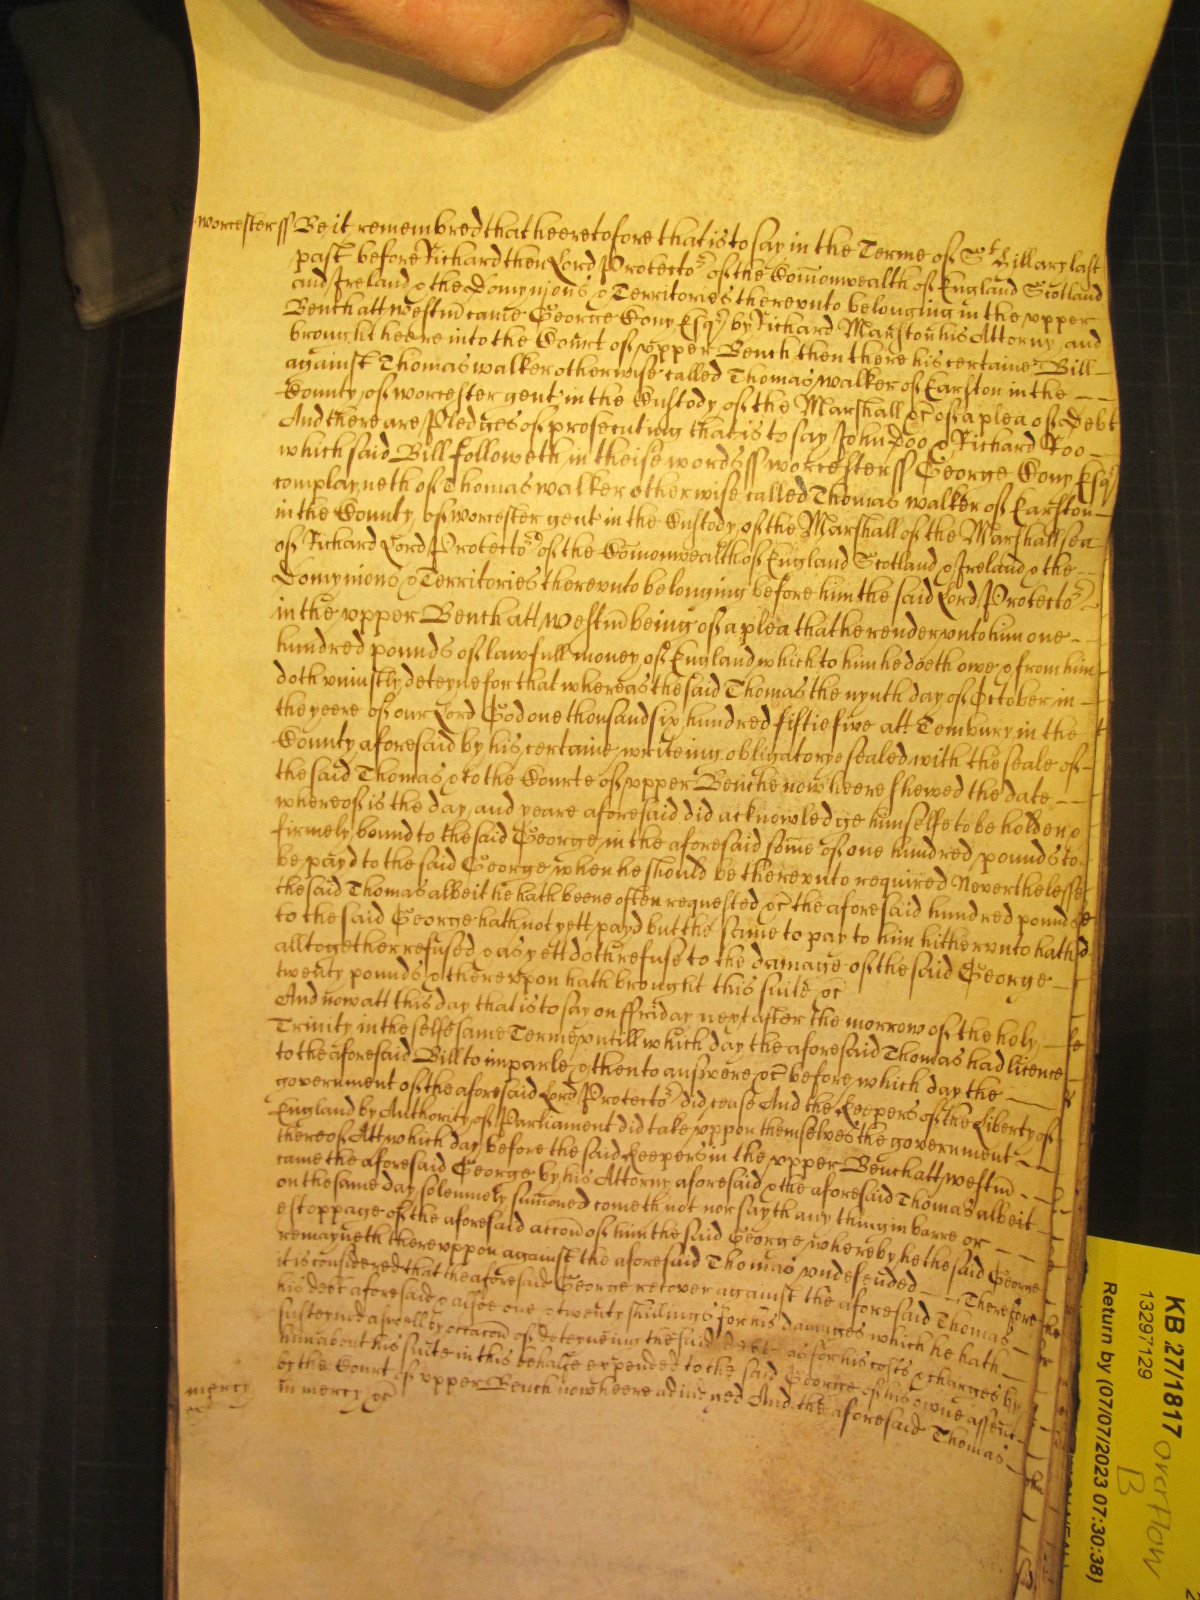 worcester ss Be it remembred that heeretofore that is to say in the Terme of St Hillary last
past before Richard then Lord Protector of the Com̄onwealth of England Scotland
and Ireland & the Domynions & Territories therevnto belonging in the vpper
Bench att Westm̄ came George Cony Esqr by Richard Marston his Attorny and
brought heere into the Court of vpper Bench then there his certaine Bill
against Thomas walker otherwise called Thomas walker of Earston in the
County of worcester gent in the Custody of the Marshall &c of a plea of Debt
And there are Pledges of prosecuting that is to say John Doo & Richard Roo
which said Bill followeth in theise words ss worcester ss George Cony Esqr
complayneth of Thomas walker otherwise called Thomas walker of Earston
in the County of worcester gent in the Custody of the Marshall of the Marshallsea
of Richard Lord Protector of the Com̄onwealth of England Scotland & Ireland & the
Domynions & Territories therevnto belonging before him the said Lord Protector
in the vpper Bench att Westm̄ being of a plea that he render vnto him one
hundred pounds of lawfull money of England which to him he doeth owe & from him
doth vniustly deteyne for that whereas the said Thomas the nynth day of October in
the yeere of our Lord God one thousand six hundred fiftie five att Tembury in the
County aforesaid by his certaine writeing obligatorye sealed with the seale of
the said Thomas & to the Courte of vpper Benche now heere shewed the date
whereof is the day and yeare aforesaid did acknowledge himselfe to be holden &
firmely bound to the said George in the aforesaid som̄e of one hundred pounds to
be payd to the said George when he should be therevnto required Neverthelesse
the said Thomas albeit he hath beene often requested &c the aforesaid hundred pounds
to the said George hath not yett payd but the same to pay to him hithervnto hath
alltogether refused & as yett doth refuse to the damage of the said George
twenty pounds & therevpon hath brought this suite &c
And now att this day that is to say on ffriday next after the morrow of the holy
Trinity in the selfe same Terme vntill which day the aforesaid Thomas had licence
to the aforesaid Bill to imparle & then to answere &c before which day the
government of the aforesaid Lord Protector did cease And the Keepers of the Liberty of
England by Authority of Parliament did take vppon themselves the government
thereof Att which day before the said Keepers in the vpper Bench att westm̄
came the aforesaid George by his Attorny aforesaid & the aforesaid Thomas albeit
on the same day solemnely sum̄oned cometh not nor sayth any thing in barre or
estoppage of the aforesaid accon̄ of him the said George whereby he the said George
remayneth therevppon against the aforesaid Thomas vndefended Therefore
it is considered that the aforesaid George recover against the aforesaid Thomas
his debt aforesaid & alsoe one & twenty shillings for his damages which he hath
susteyned aswell by occacon̄ of deteyneing the said debt as for his costs & charges by
him about his suite in this behalfe expended to the said George of his owne assent
by the Court of vpper Bench now heere adiudged And the aforesaid Thomas
mercy in mercy &c
KB 27/1817
13297129
Return by (07/07/2023 07:30:38)
Overflow
B